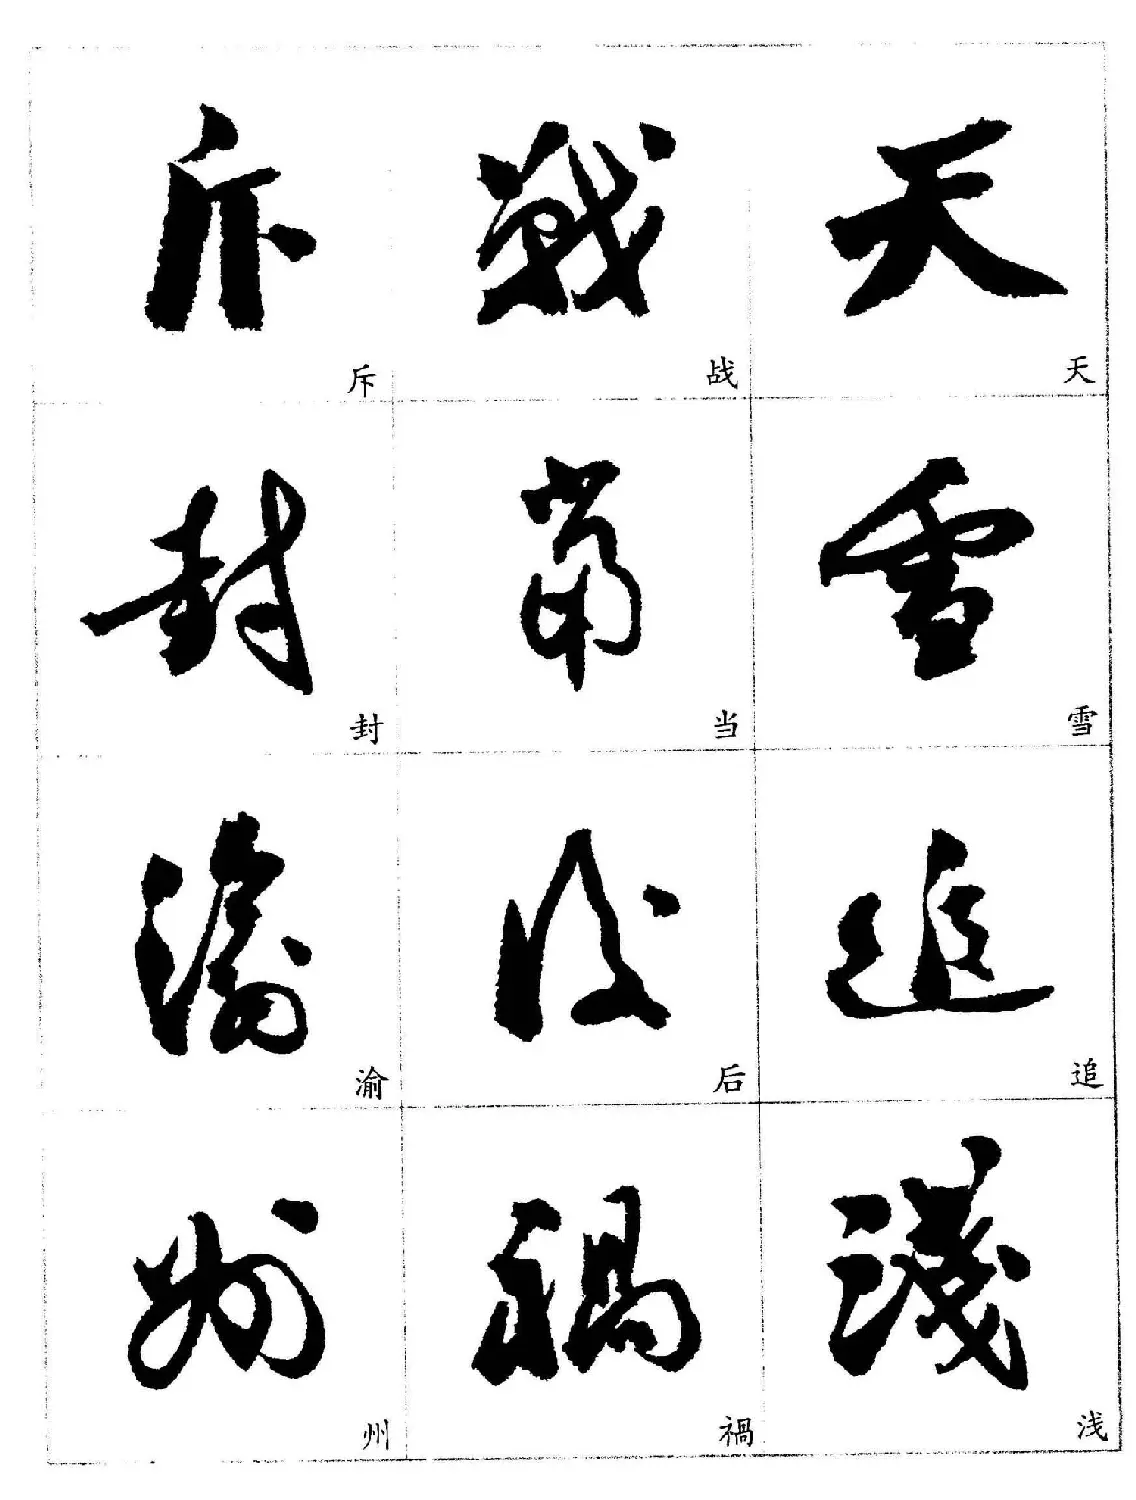 天
天
雪
雪
追
追
淺
浅
戰
战
當
当
後
后
禍
禍
斥
斥
封
封
渝
渝
州
州